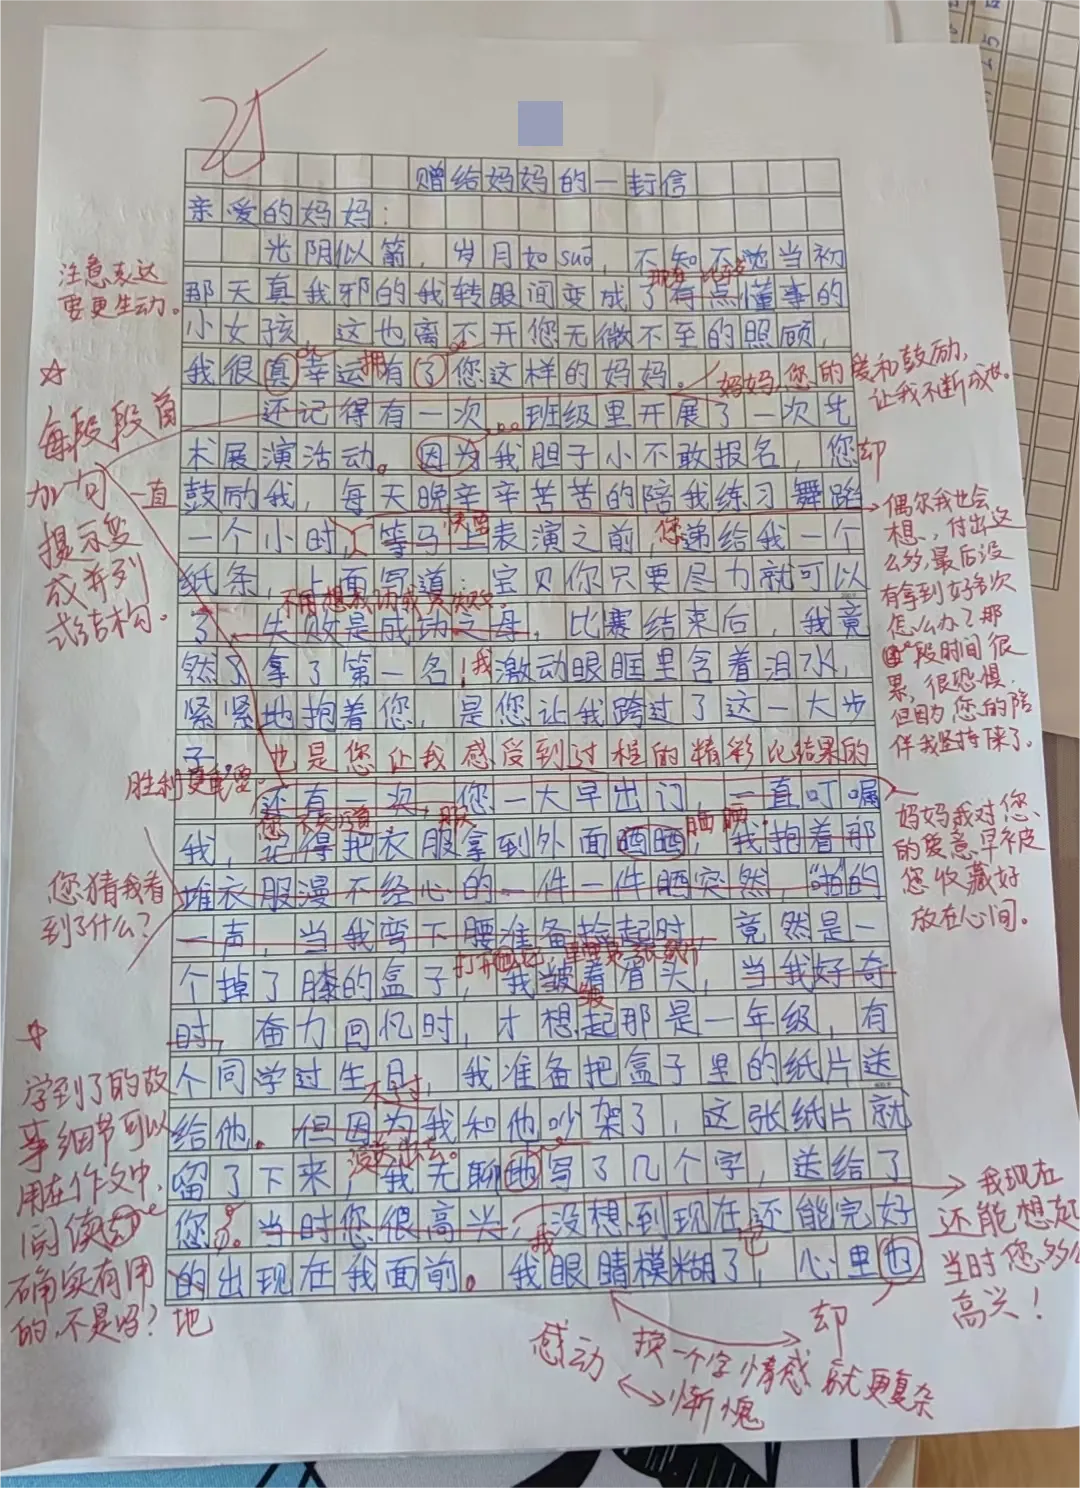 25
赠给妈妈的一封信
亲爱的妈妈：
光阴似箭，岁月如suō，不知不觉当初
那天真我邪的我转眼间变成了有点懂事的
小女孩 这也离不开您无微不至的照顾，
我很真幸运拥有了您这样的妈妈。
还记得有一次 班级里开展了一次艺
术展演活动。因为我胆子小不敢报名，您却
一直鼓励我，每天晚辛辛苦苦的陪我练习舞蹈
一个小时，等马上表演之前，您递给我一个
纸条，上面写道：宝贝你只要尽力就可以
了，失败是成功之母，比赛结束后，我竟
然了拿了第一名！我激动眼眶里含着泪水，
紧紧地抱着您，是您让我跨过了这一大步
子 也是您让我感受到过程的精彩比结果的
胜利更重要。
还有一次，您一大早出门，一直叮嘱
我，记得把衣服拿到外面晒晒，我抱着那
堆衣服漫不经心的一件一件晒突然，“啪的
一声，当我弯下腰准备捡起时 竟然是一
个掉了膝的盒子，我皱着眉头，当我好奇
时，奋力回忆时，才想起那是一年级，有
个同学过生日，我准备把盒子里的纸片送
给他。但因为我和他吵架了，这张纸片就
留了下来，我无聊地写了几个字，送给了
您。当时您很高兴，没想到现在还能完好
的出现在我面前。我眼睛模糊了，心里也
注意表达
要更生动。
每段段首
加句
提示变
成并列
式结构。
您猜我看
到了什么？
学到了的故
事细节可以
用在作文中，
阅读
确实有用
的，不是吗？
地
妈妈，您的爱和鼓励，
让我不断成长。
偶尔我也会
想，付出这
么多，最后没
有拿到好名次
怎么办？那
段时间很
累，很恐惧，
但因为您的陪
伴我坚持下来了。
妈妈我对您
的爱意早被
您收藏好
放在心间。
我现在
还能想起
当时您多么
高兴！
却
感动
换一个字情感就更复杂
惭愧